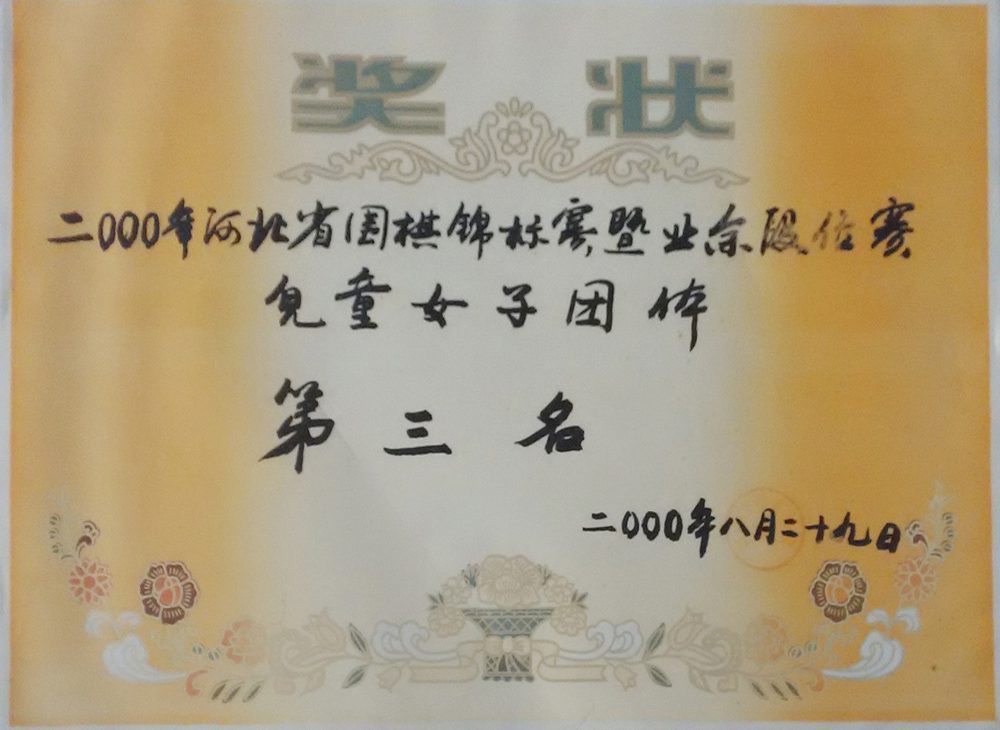 奖状
二000年河北省围棋锦标赛暨业余段位赛
児童女子团体
第三名
二000年八月二十九日